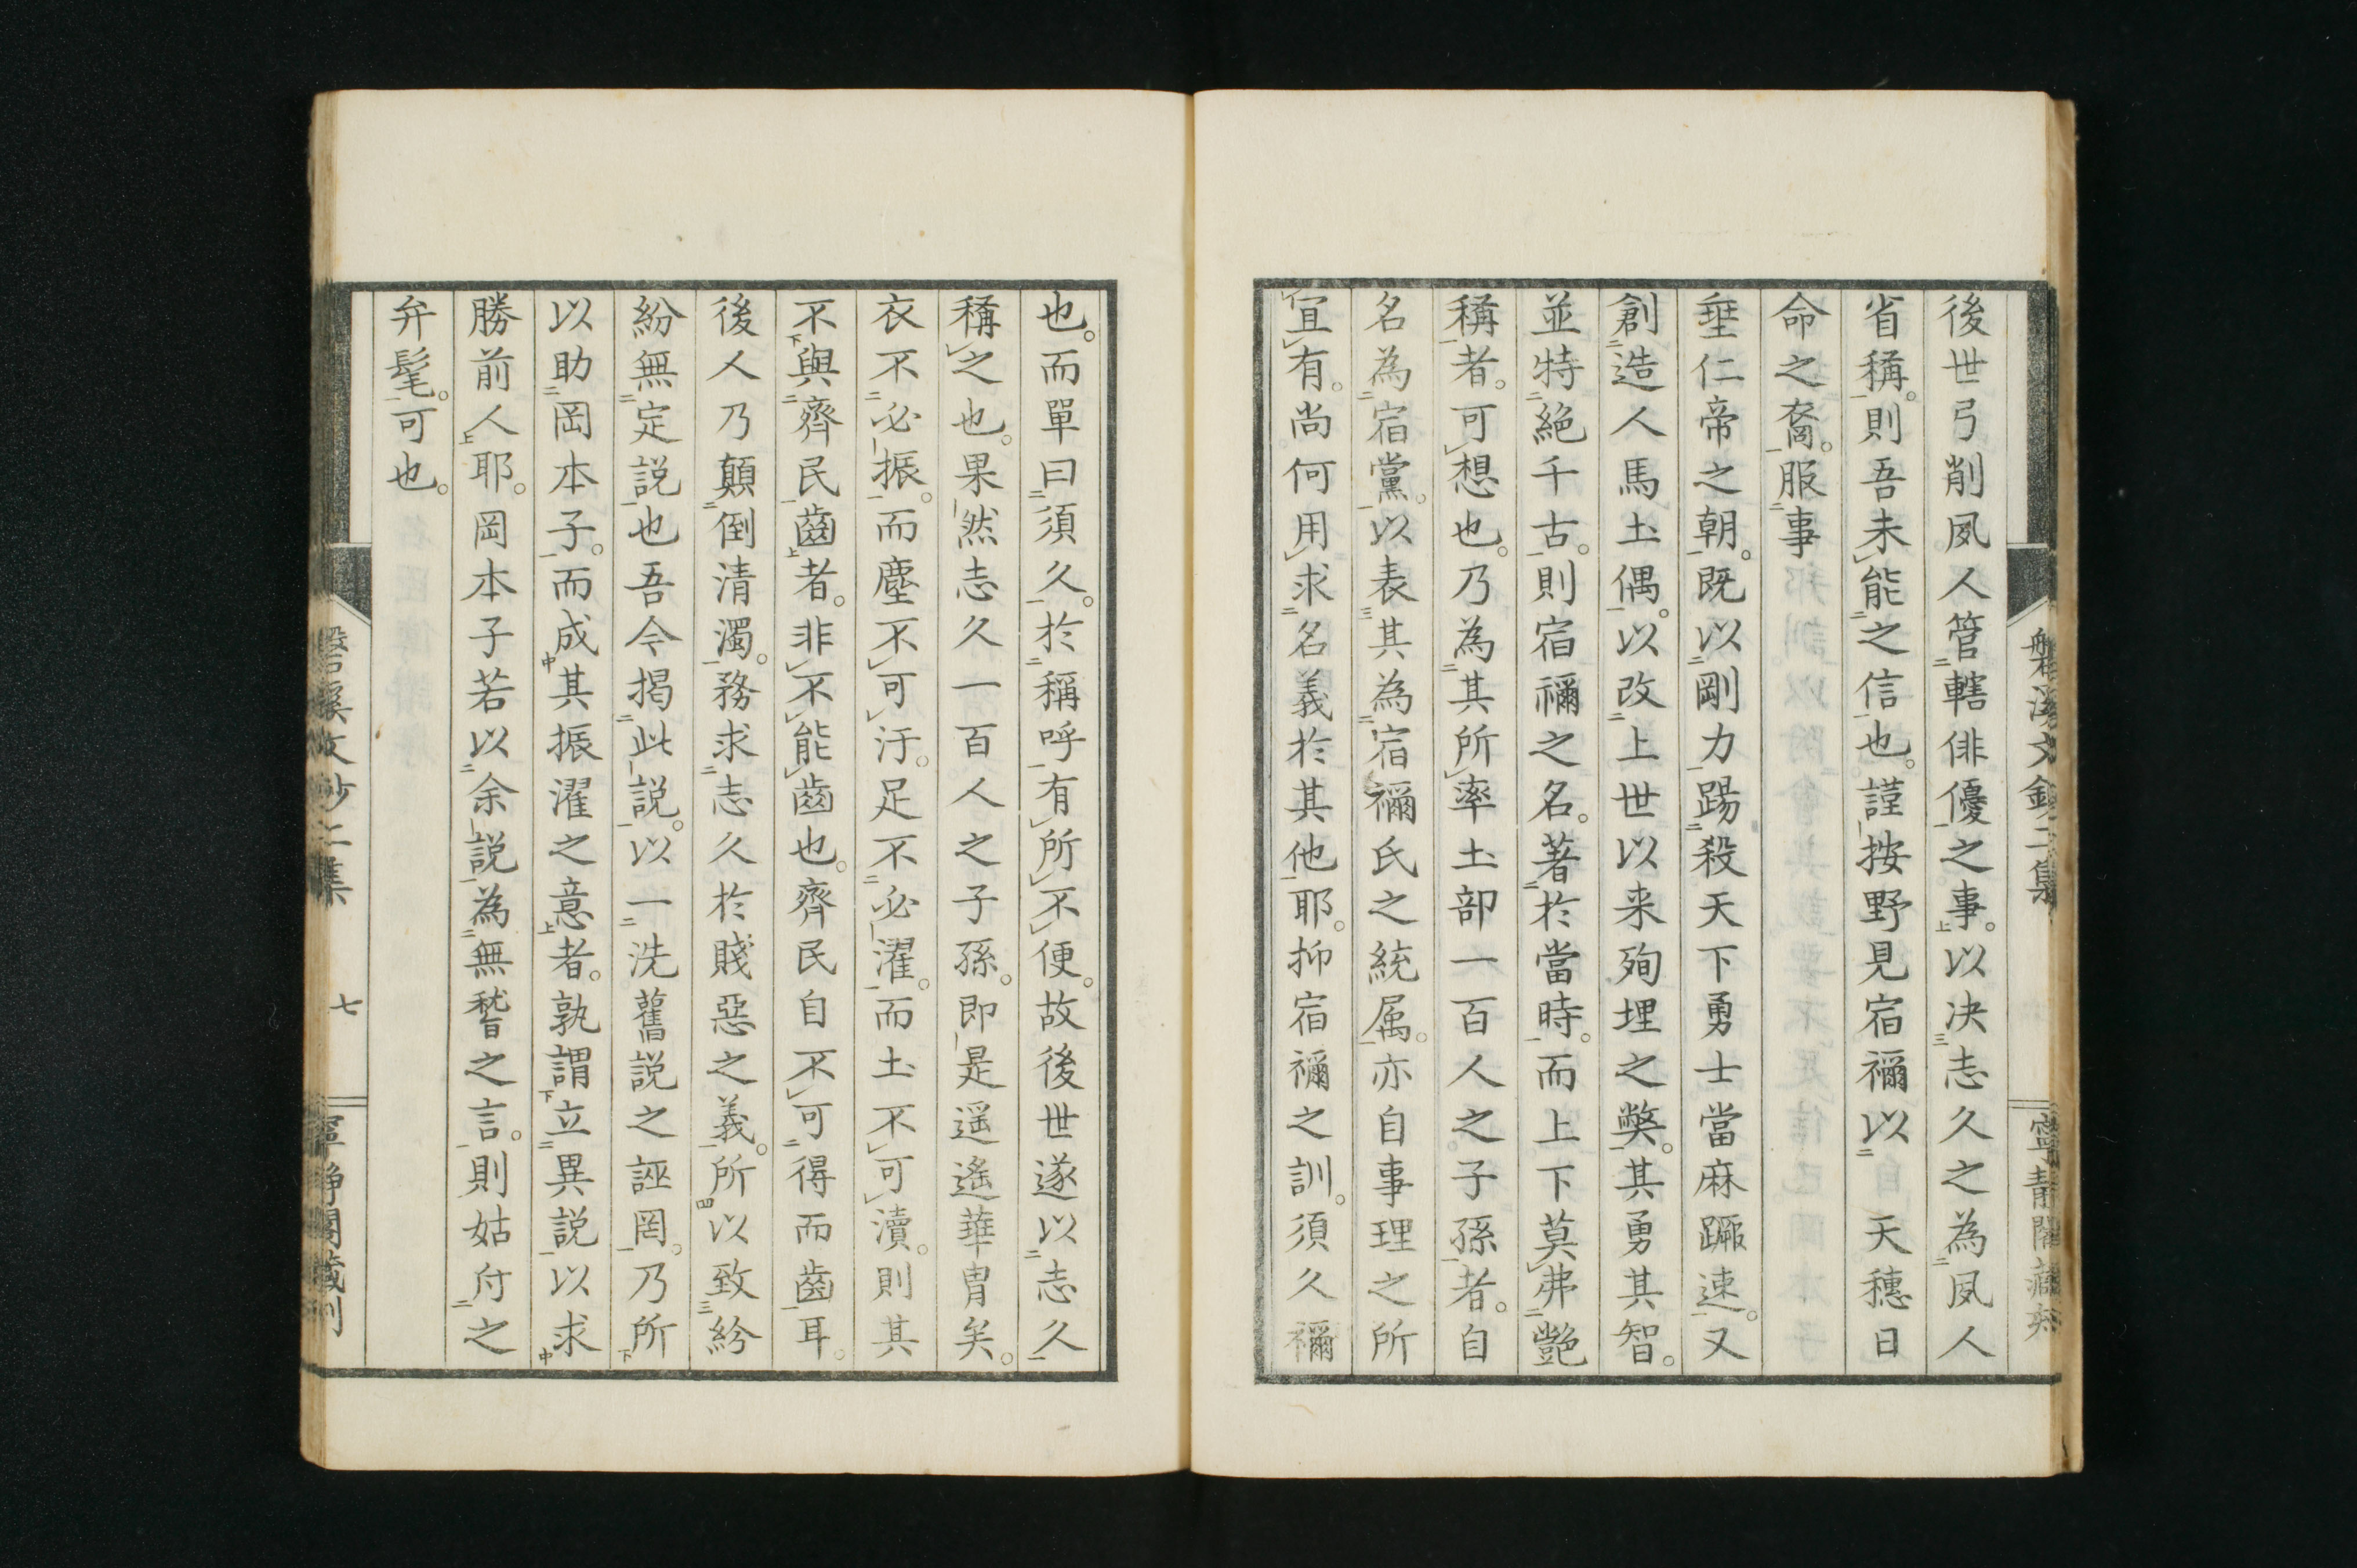 後世弓削夙人管轄俳優之事。以决志久之為夙人
省稱。則吾未能之信也。謹按野見宿禰以 天穗日
命之裔。服事
垂仁帝之朝。既以剛力踢殺天下勇士當麻蹶速。又
創造人馬土偶。以改上世以来殉埋之獘。其勇其智。
並特絶千古。則宿禰之名。著於當時。而上下莫弗艷
稱者。可想也。乃為其所率土部一百人之子孫者。自
名為宿黨。以表其為宿禰氏之統属。亦自事理之所
宜有。尚何用求名義於其他耶。抑宿禰之訓。須久禰
也。而單曰須久。於稱呼有所不便。故後世遂以志久
稱之也。果然志久一百人之子孫。即是遥遙華胄矣。
衣不必振。而塵不可汙。足不必濯。而土不可瀆。則其
不與齊民齒者。非不能齒也。齊民自不可得而齒耳。
後人乃顛倒清濁。務求志久於賤惡之義。所以致紛
紛無定説也吾今掲此説。以一洗舊説之誣罔。乃所
以助岡本子。而成其振濯之意者。孰謂立異説以求
勝前人耶。岡本子若以余説為無稽之言。則姑付之
弁髦。可也。
磐溪文鈔二集
七
寧静閣藏刻